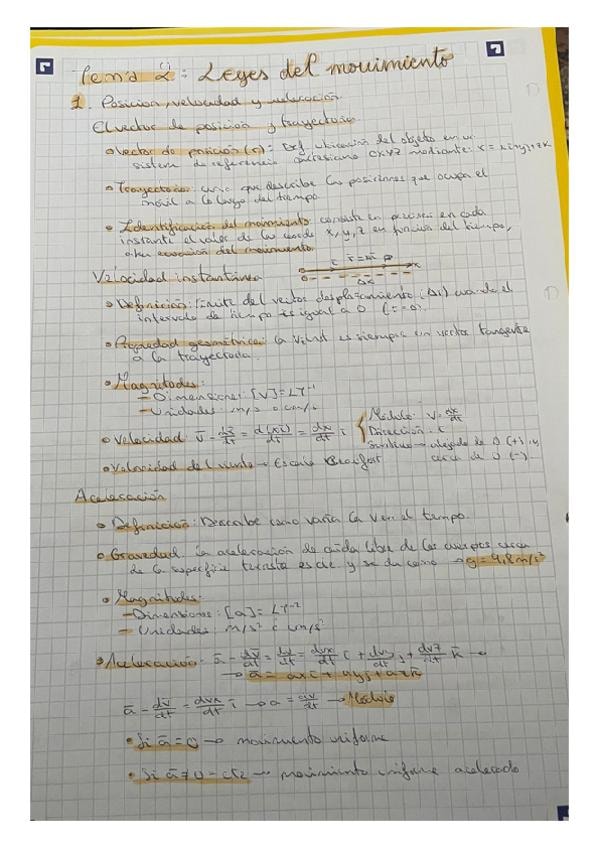 Tema 2: Leyes del movimiento
1. Posicion, velocidad y aceleración.
El vector de posición y trayectoria
Vector de posición (r) = Def. ubicación del objeto en un
sistema de referencia cartesiano OXYZ mediante: r = xi+yj+zk
Trayectoria: curva que describe las posiciones que ocupa el
móvil a lo largo del tiempo.
Identificación del movimiento: consiste en precisar en cada
instante el valor de las coords x, y, z en función del tiempo,
ecuación del movimiento.
Velocidad instantánea
Definición: límite del vector desplazamiento (Δr) cuando el
intervalo de tiempo es igual a 0 (t=0).
Propiedad geométrica: la V.inst es siempre un vector tangente
a la trayectoria.
Magnitudes:
- Dimensiones: [V]=LT⁻¹
- Unidades: m/s o cm/s
Velocidad: v̄ = dx̄/dt = d(xī)/dt = dx/dt ī
Módulo: V = dx/dt
Dirección: ī
Sentido → alejado de O (+) y
cerca de O (-).
Velocidad del viento → Escala Beaufort
Aceleración
Definición: Describe como varía la v en el tiempo.
Gravedad: la aceleración de caída libre de los cuerpos cerca
de la superficie terrestre es cte y se da como → g = 9,8 m/s²
Magnitudes:
- Dimensiones: [a] = LT⁻²
- Unidades: m/s² o cm/s²
Aceleración: ā = dv̄/dt = dv/dt = dvx/dt ī + dvy/dt j + dvz/dt k̄ →
→ ā = axī + ayj + azk̄
ā = dv̄/dt = dvx/dt ī → a = dv/dt → Módulo
Si ā = 0 → movimiento uniforme
Si ā ≠ 0 = cte → movimiento uniforme acelerado